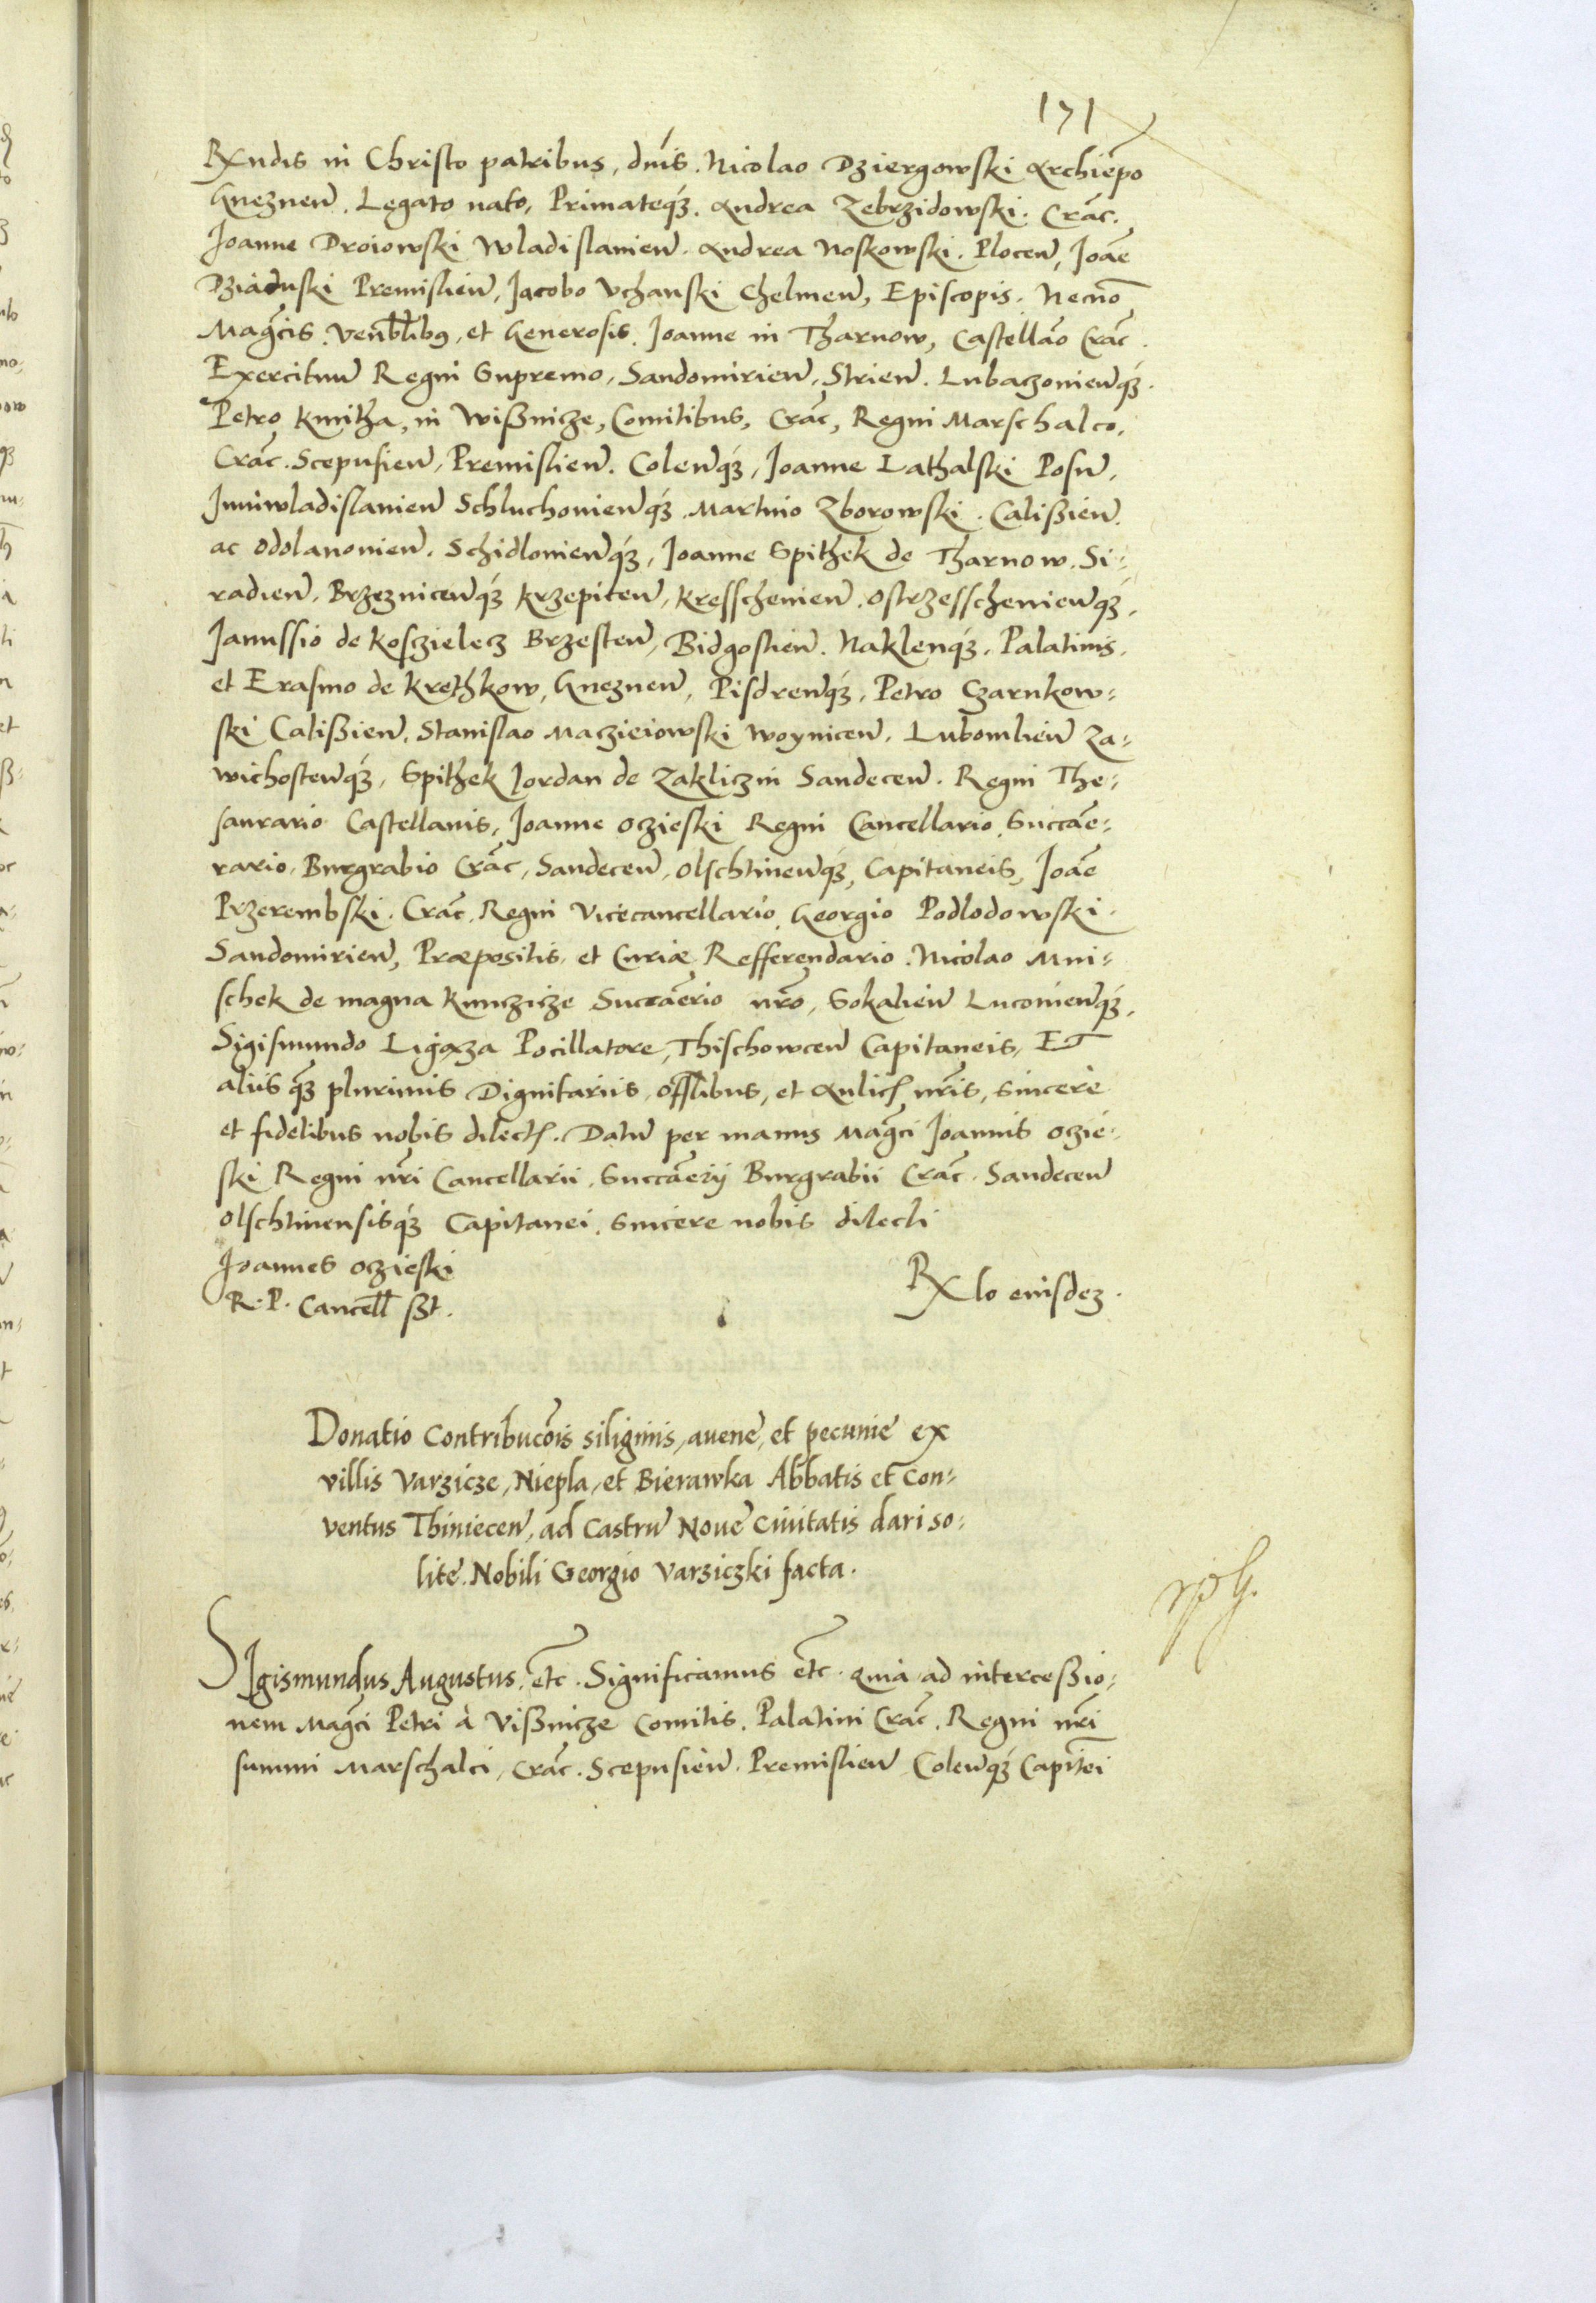 171
Rxndis in Christo patribus, dnis. Nicolao Dziergowski Archiepo
Gneznen. Legato nato, Primateq3. Andrea Zebrzidowski. Crac.
Joanne Droiowski Wladislauien. Andrea Noskowski. Plocen, Joāe
Dziaduski Premislien, Jacobo Vchanski Chelmen, Episcopis. Necnō
Magcis. Venblibus, et Generosis. Joanne in Tharnow, Castellāo Crac.
Exercituum Regni Supremo, Sandomirien, Strien. Lubaczouienq3.
Petro Kmitha, in Wißnicze, Comitibus, Crac, Regni Marschalco,
Crac. Scepusien, Premislien. Colenq3, Joanne Lathalski Posn,
Juniwladislauien Schluchouienq3. Martino Zborowski. Calißien.
ac Odolanouien. Schidlouienq3, Joanne Spithek de Tharnow. Si-
radien. Brzeznicenq3 Krzepicen, Kresschenien. Ostrzesschenienq3,
Janussio de Kosczielecz Brzesten, Bidgostien. Naklenq3. Palatinis.
et Erasmo de Krethkow, Gneznen, Pisdrenq3, Petro Czarnkow-
ski Calißien. Stanislao Maczieiowski Woynicen. Lubomlien Za-
wichostenq3, Spithek Jordan de Zakliczin Sandecen. Regni The-
saurario Castellanis, Joanne Oczieski Regni Cancellario, Succāe-
rario, Burgrabio Crac, Sandecen, Olschtinenq3, Capitaneis, Joāe
Przerembski. Crac. Regni Vicecancellario, Georgio Podlodowski.
Sandomirien, Præpositis, et Curiæ Refferendario. Nicolao Mni-
schek de magna Kunczicze Succāerio nrō, Sokalien Luconienq3,
Sigismundo Ligęza Pocillatore, Thischowcen Capitaneis, ET
aliis q3 plurimis Dignitariis, Offlibus, et Aulicis nris, sincerè
et fidelibus nobis dilectis. Datū per manus Magci Joannis Oczie-
ski Regni nri Cancellarii, Succāerij Burgrabii Crac. Sandecen
Olschtinensisq3 Capitanei. Sincere nobis dilecti
Joannes Oczieski
R. P. Cancell ßt.
Rxlo euisdez.
Donatio Contribucōis siliginis, auene, et pecunie ex
villis Varzicze, Niepla, et Bierawka Abbatis et Con-
ventus Thiniecen, ad Castrū Noue Ciuitatis dari so-
lite. Nobili Georgio Varziczki facta.
SIgismundus Augustus, etc. Significamus etc. quia ad interceßio-
nem Magci Petri à Vißnicze Comitis, Palatini Crac. Regni nri
summi Marschalci, Crac. Scepusien. Premislien Colenq3 Capitei